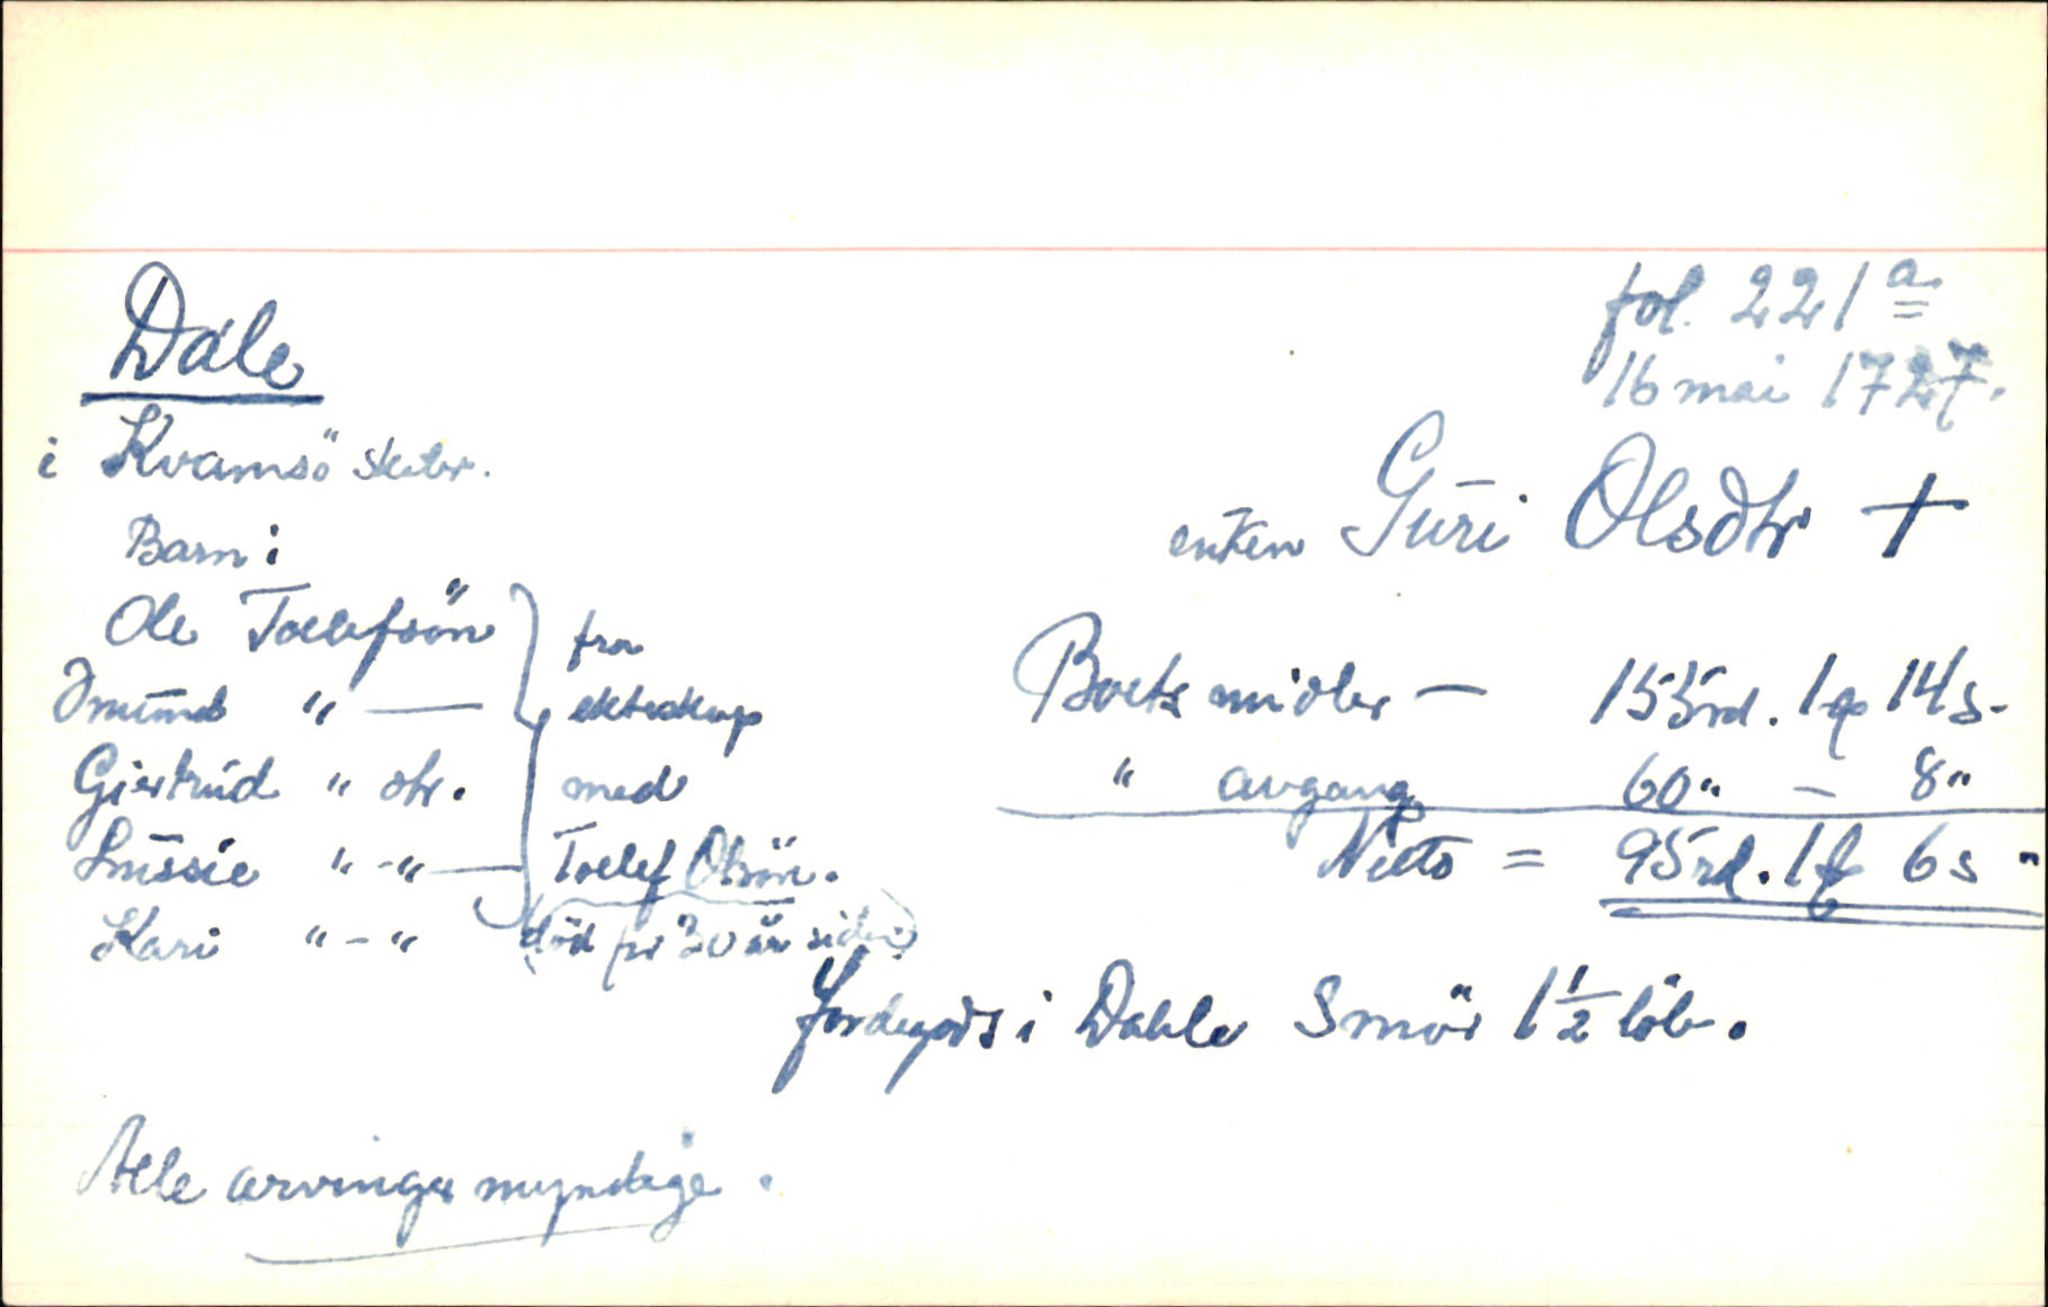 fol. 221 a.
16 mai 1727.
Dale
i Kvamsö skibr.
enken Guri Olsdtr +
Barn:
Ole Toelefsön
Omund " —
Giertrud " dtr.
Lussie " - " —
Kari " - "
fra
ekteskap
med
Toelef Olsön.
(död for 30 år siden)
Boets midler — 155 rd. 1 q 14 s.
" avgang 60 " — 8 "
Netto = 95 rd. 1 q 6 s "
Jordegods i Dahle Smör 1 1/2 löb.
Alle arvinger myndige.